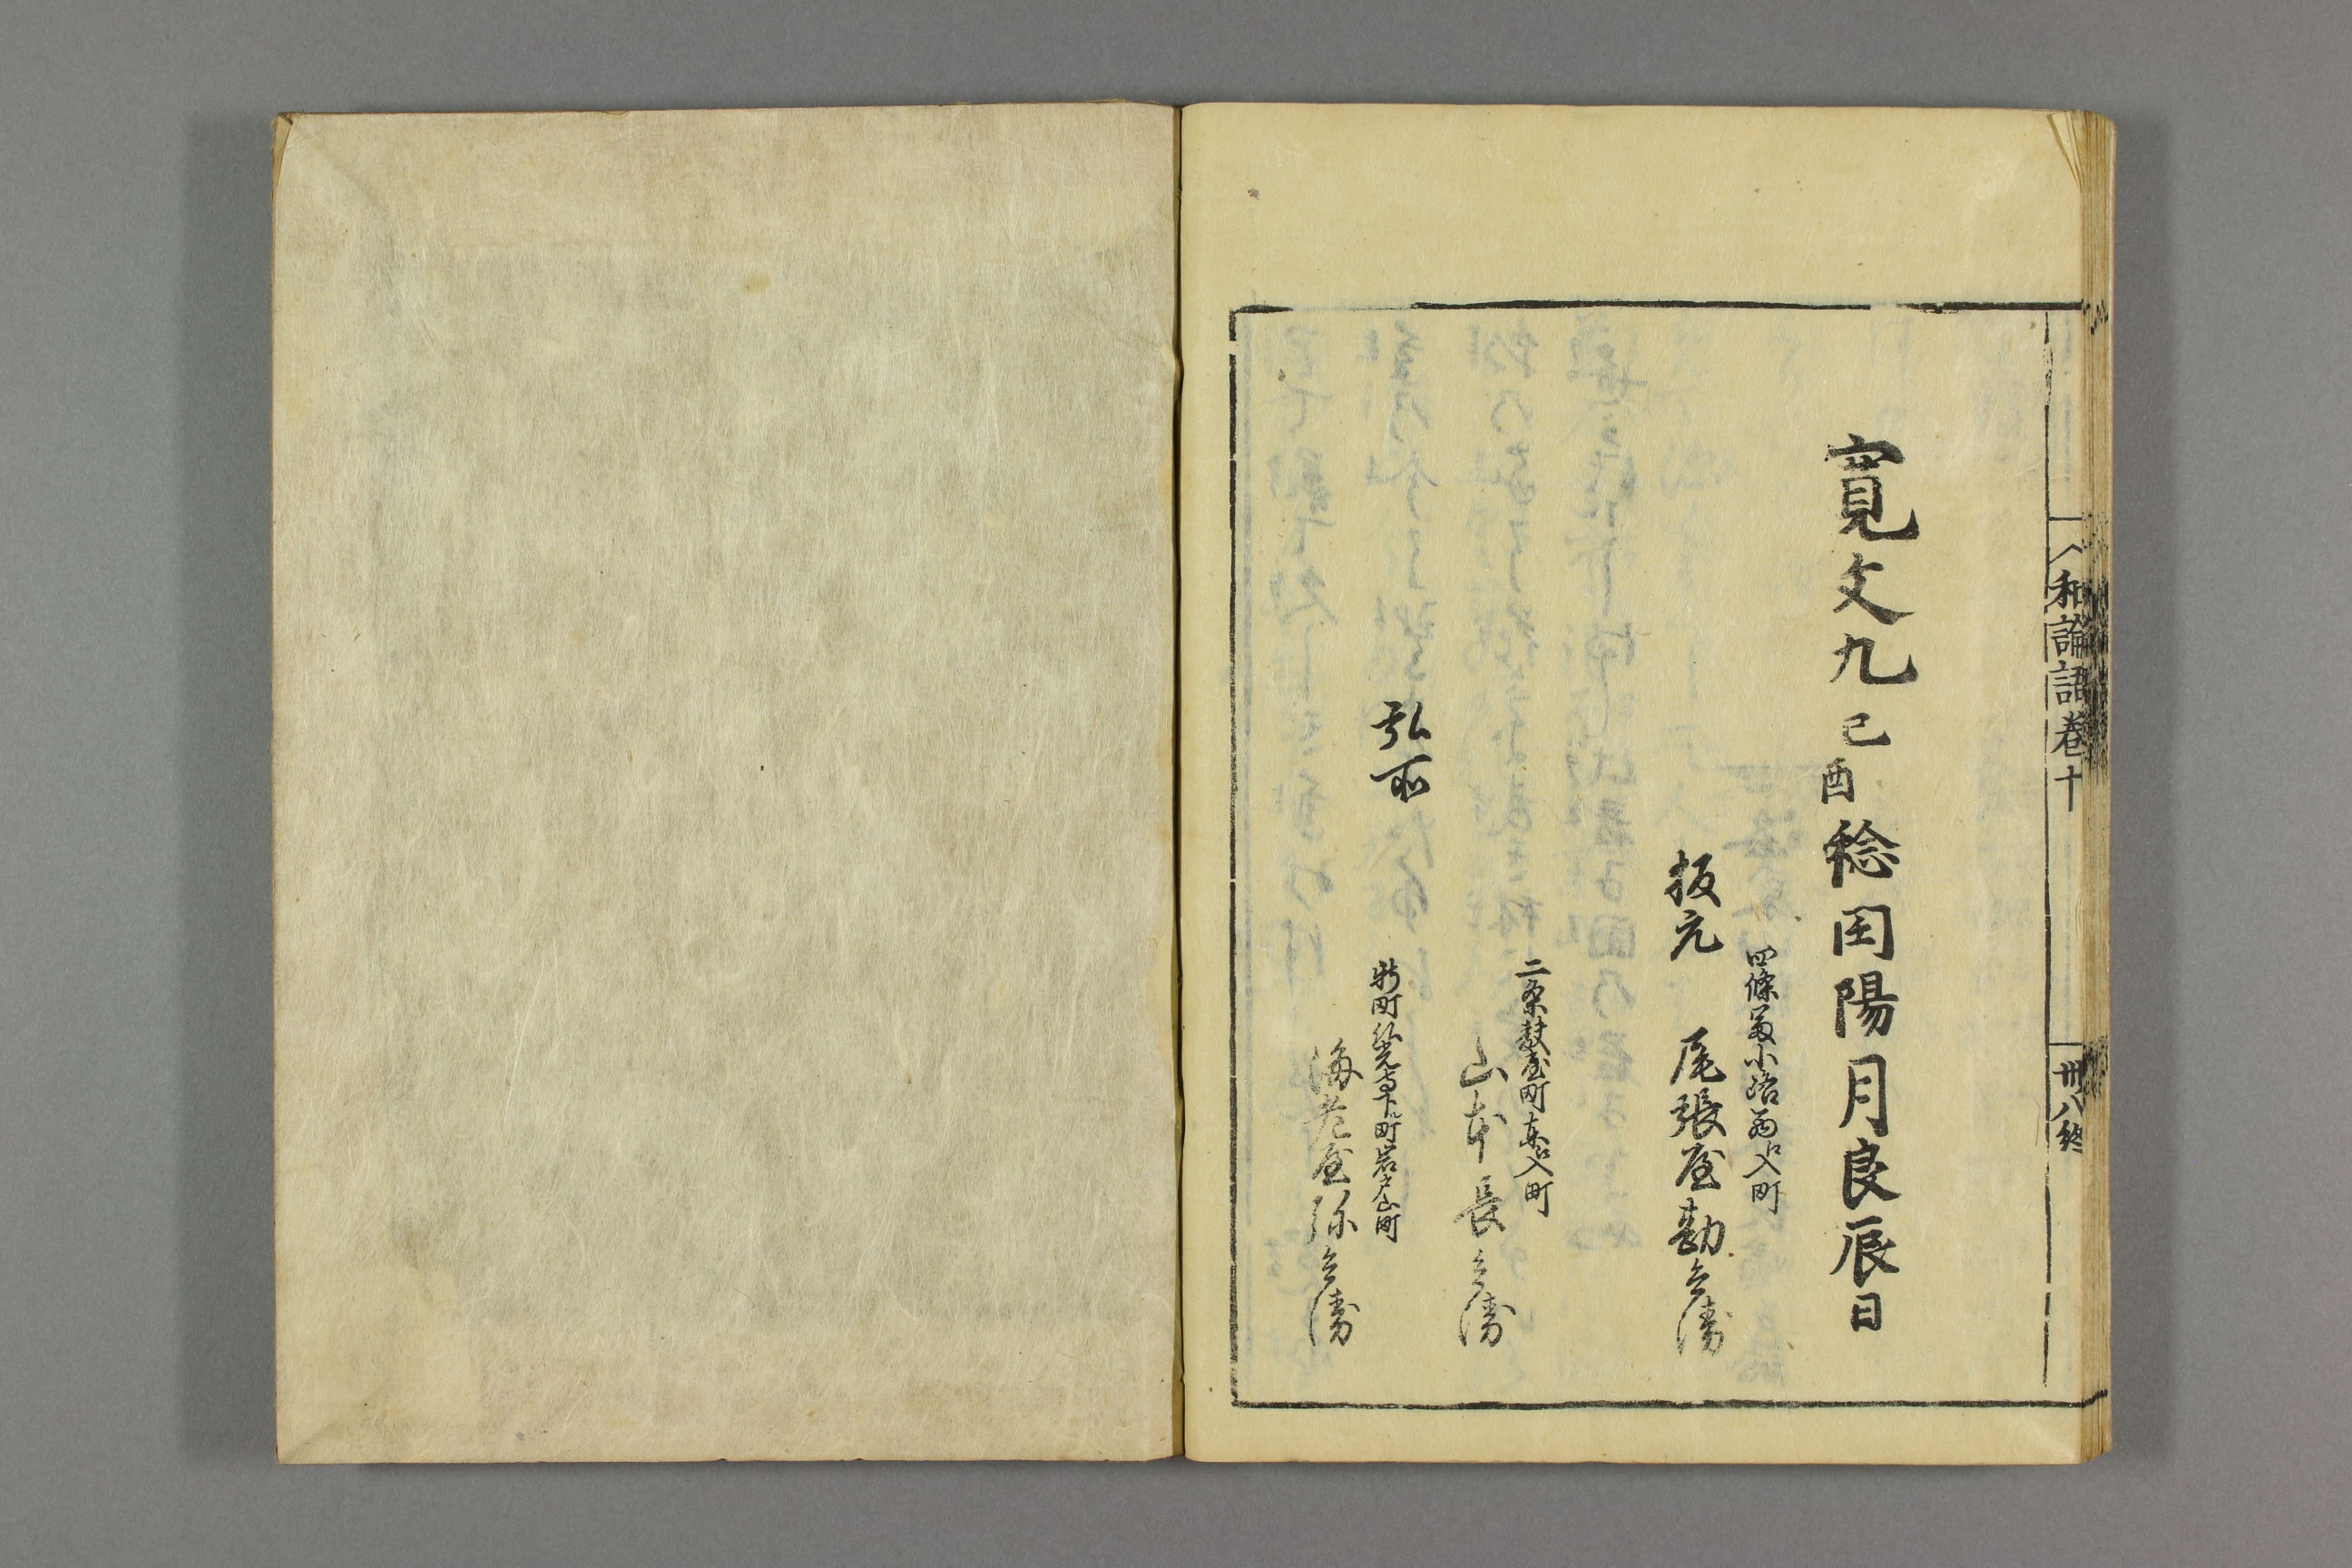 和論語巻十
卅八終
寛文九己酉稔囯陽月良辰日
四條冨小路西江入町
板元 尾張屋勘兵衛
二条麩屋町東江入町
山本長兵衛
弘所
新町仏光寺下ル町岩戸山町
海老屋弥兵衛